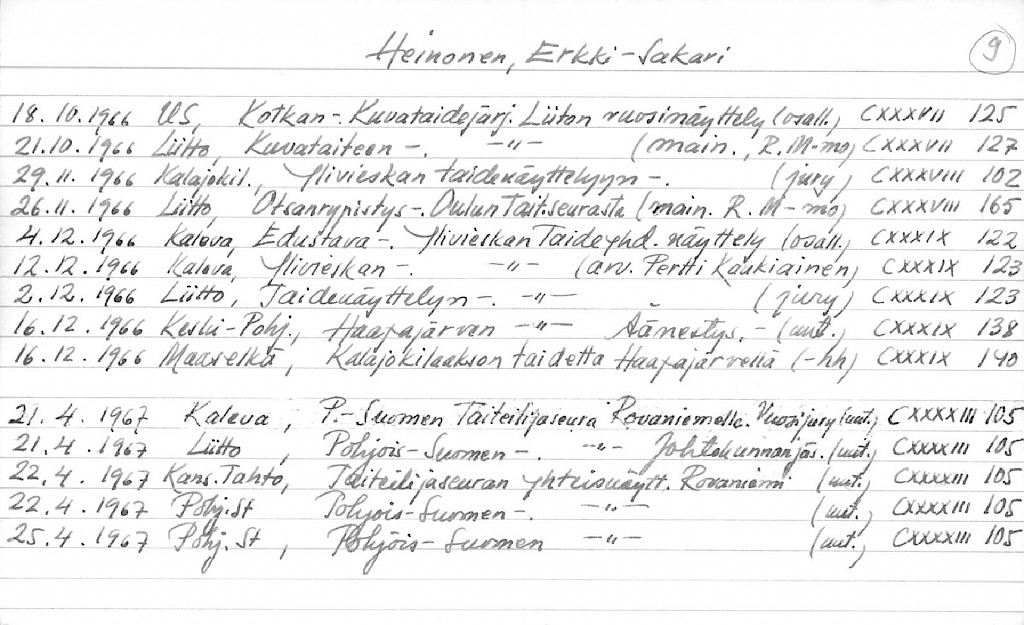 Heinonen, Erkki-Sakari 9
18.10.1966 US, Kotkan-. Kuvataidejärj. Liiton vuosinäyttely (osall.) CXXXVII 125
21.10.1966 Liitto, Kuvataiteen -. -"- (main., R. M-mo) CXXXVII 127
29.11.1966 Kalajokil., Ylivieskan taidenäyttelyyn -. (jury) CXXXVIII 102
26.11.1966 Liitto, Otsanrypistys-. Oulun Tait.seurasta (main. R. M-mo) CXXXVIII 165
4.12.1966 Kaleva, Edustava -. Ylivieskan Taideyhd. näyttely (osall.) CXXXIX 122
12.12.1966 Kaleva, Ylivieskan -. -"- (arv. Pertti Kaukiainen) CXXXIX 123
2.12.1966 Liitto, Taidenäyttelyn -. -"- (jury) CXXXIX 123
16.12.1966 Keski-Pohj., Haapajärven -"- Äänestys. - (mt.) CXXXIX 138
16.12.1966 Maaselkä, Kalajokilaakson taidetta Haapajärvellä (-hh) CXXXIX 140
21.4.1967 Kaleva, P.-Suomen Taiteilijaseura Rovaniemelle. Vuosijury (mt.) CXXXXIII 105
21.4.1967 Liitto, Pohjois-Suomen -. -"- Johtokunnanjäs. (mt.) CXXXXIII 105
22.4.1967 Kans. Tahto, Taiteilijaseuran yhteisnäytt. Rovaniemi (mt.) CXXXXIII 105
22.4.1967 Pohj. St Pohjois-Suomen -. -"- (mt.) CXXXXIII 105
25.4.1967 Pohj. St, Pohjois-Suomen -"- (mt.) CXXXXIII 105